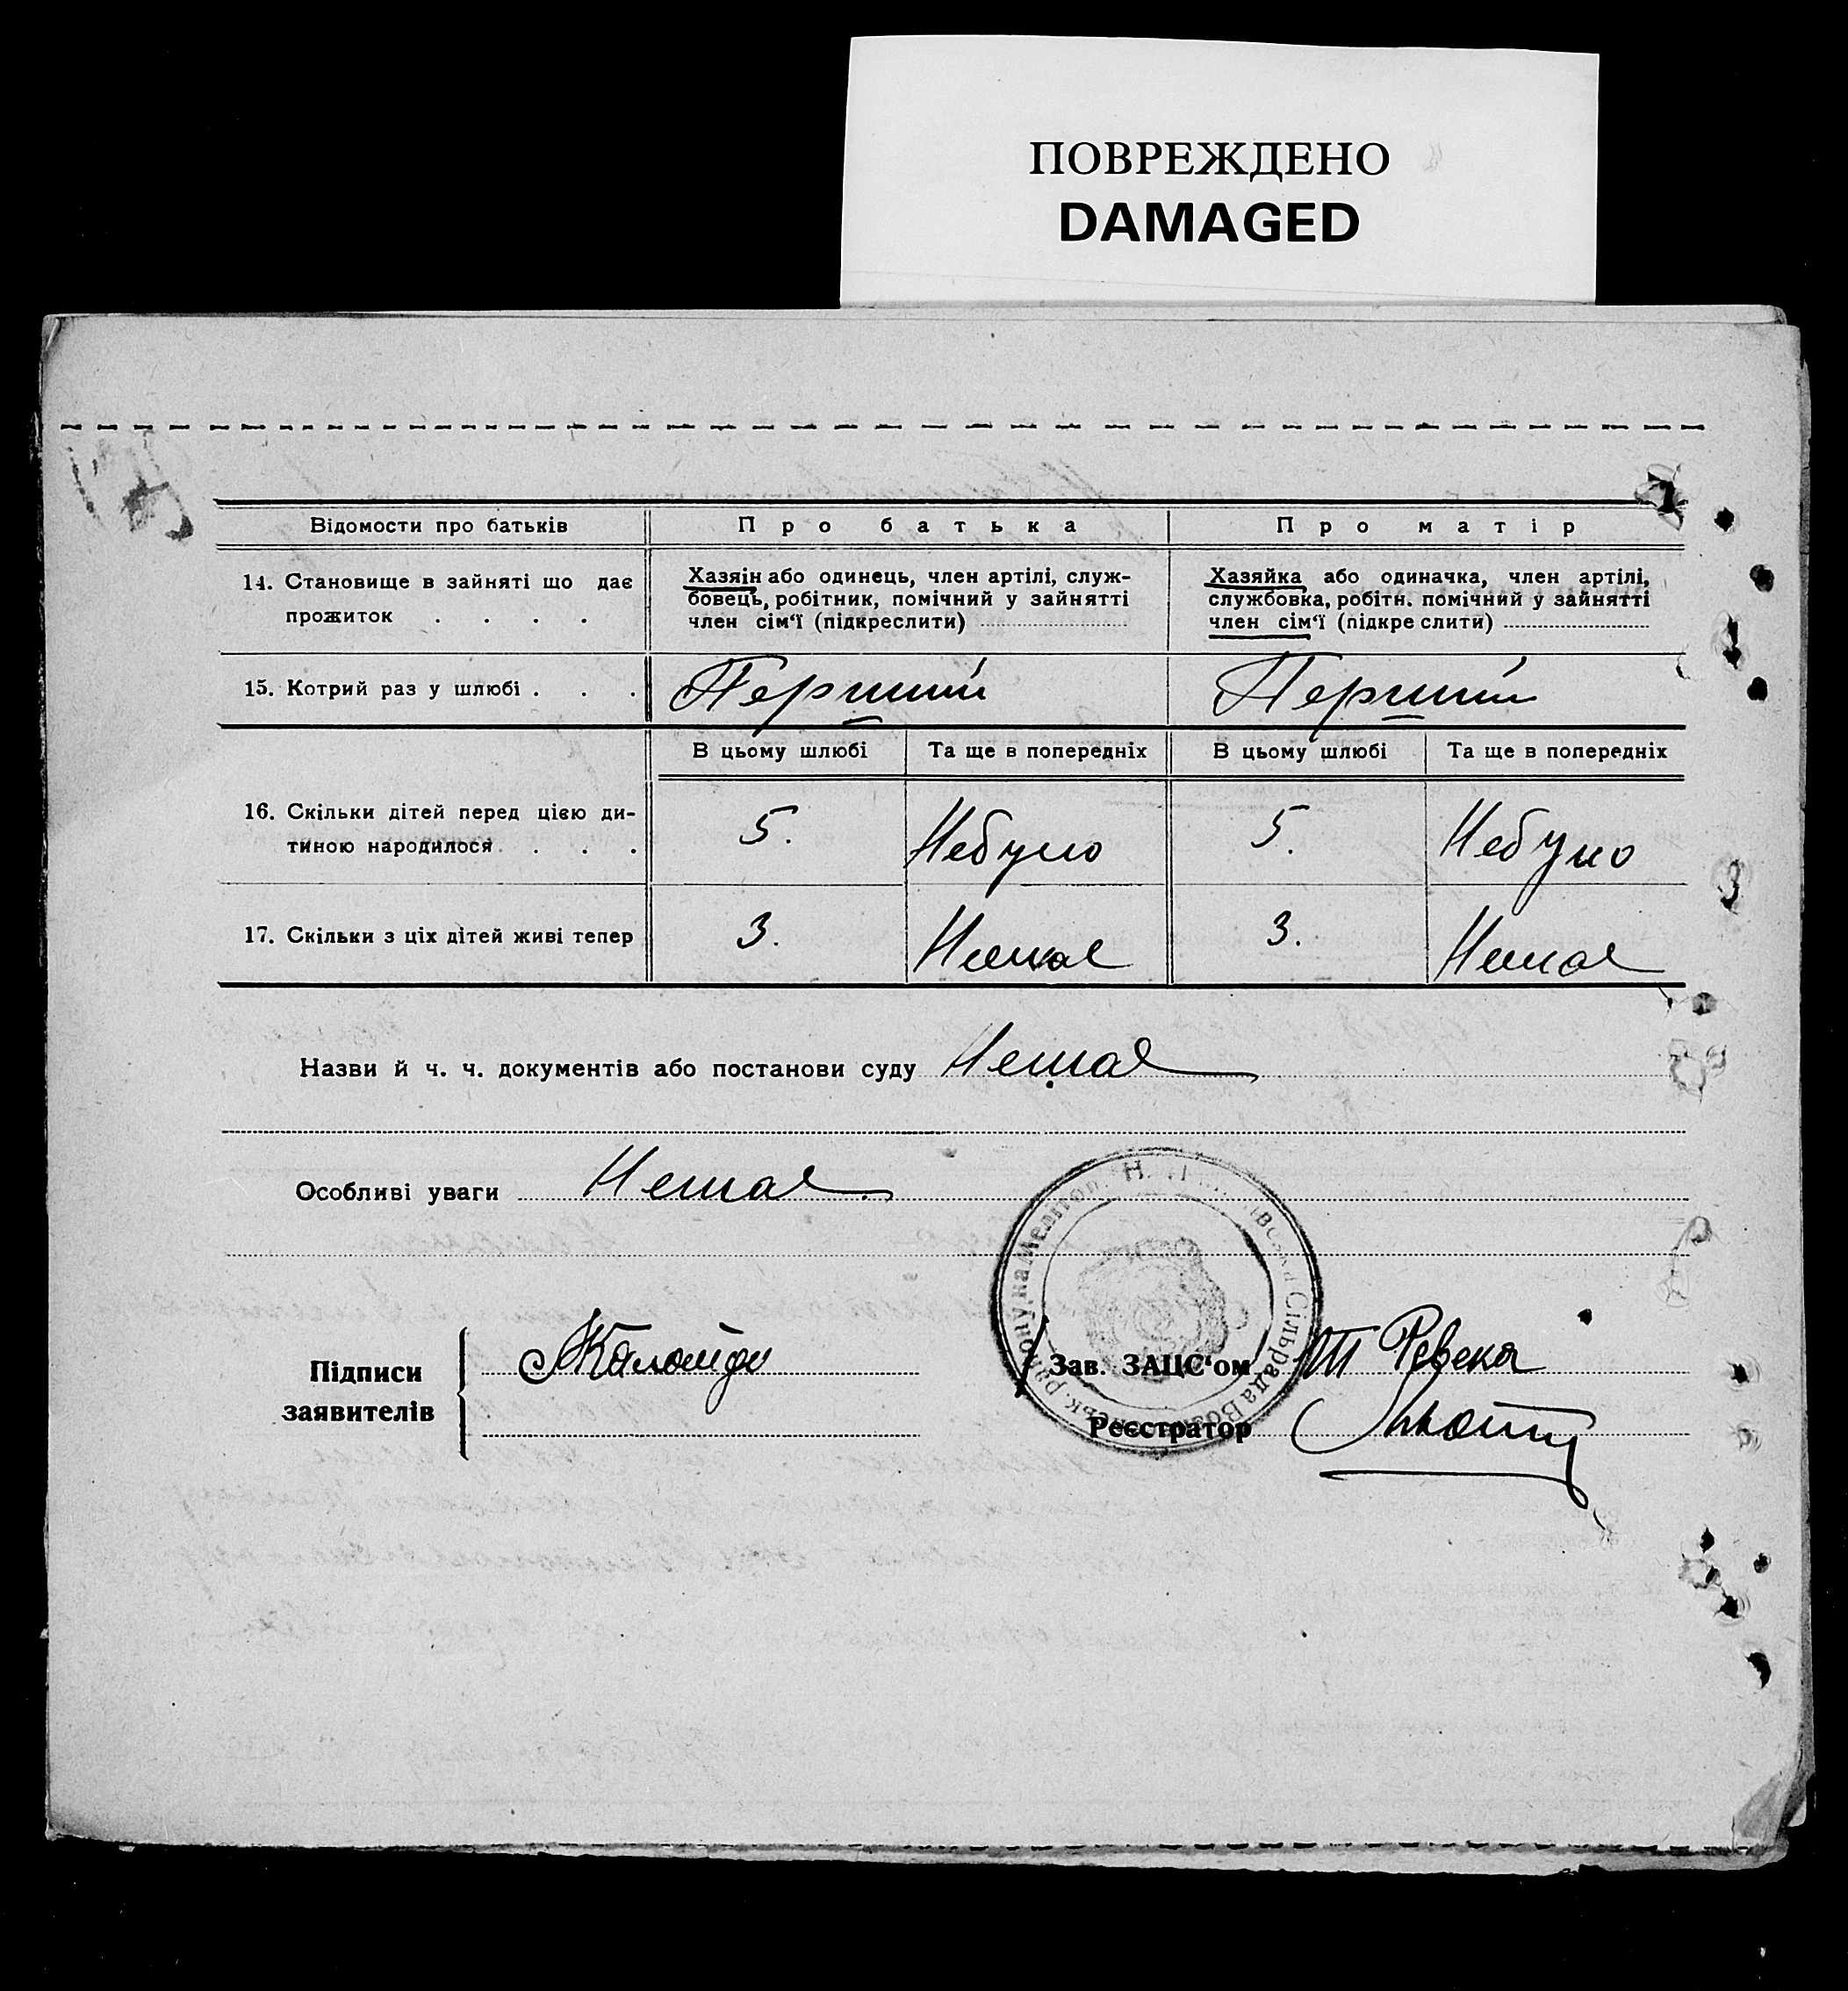 ПОВРЕЖДЕНО
DAMAGED
Відомости про батьків
Про батька
Про матір
14. Становище в зайняті що дає
прожиток . . . .
Хазяін або одинець, член артілі, служ-
бовець, робітник, помічний у зайнятті
член сім‘ї (підкреслити)
Хазяйка або одиначка, член артілі,
службовка, робітн. помічний у зайнятті
член сім‘ї (підкреслити)
15. Котрий раз у шлюбі . . .
Перший
Перший
В цьому шлюбі
Та ще в попередніх
В цьому шлюбі
Та ще в попередніх
16. Скільки дітей перед цією ди-
тиною народилося . . .
5.
Небуло
5.
Небуло
17. Скільки з ціх дітей живі тепер
3.
Немає
3.
Немає
Назви й ч. ч. документів або постанови суду Немає
Особливі уваги Немає
Підписи
заявителів
Зав. ЗАЦС‘ом
Ревека
Реєстратор
Сільрада
району, на Мелітоп.